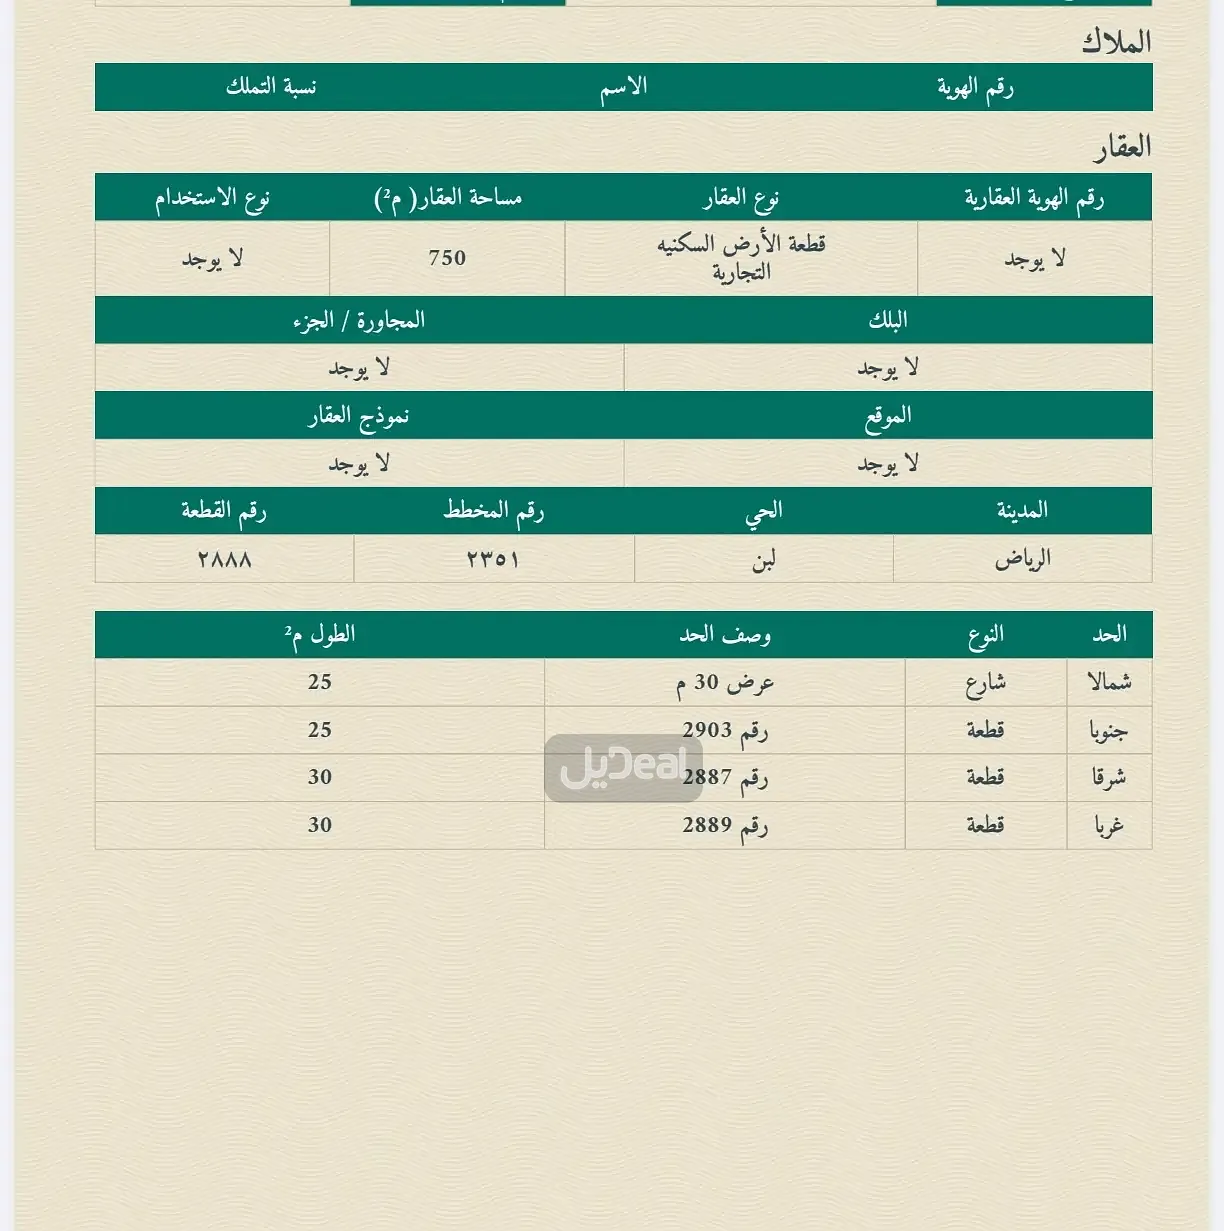 الملاك
رقم الهوية الاسم نسبة التملك
العقار
رقم الهوية العقارية نوع العقار مساحة العقار( م²) نوع الاستخدام
لا يوجد قطعة الأرض السكنيه التجارية 750 لا يوجد
البلك المجاورة / الجزء
لا يوجد لا يوجد
الموقع نموذج العقار
لا يوجد لا يوجد
المدينة الحي رقم المخطط رقم القطعة
الرياض لبن ٢٣٥١ ٢٨٨٨
الحد النوع وصف الحد الطول م²
شمالا شارع عرض 30 م 25
جنوبا قطعة رقم 2903 25
شرقا قطعة رقم 2887 30
غربا قطعة رقم 2889 30
ديل Deal